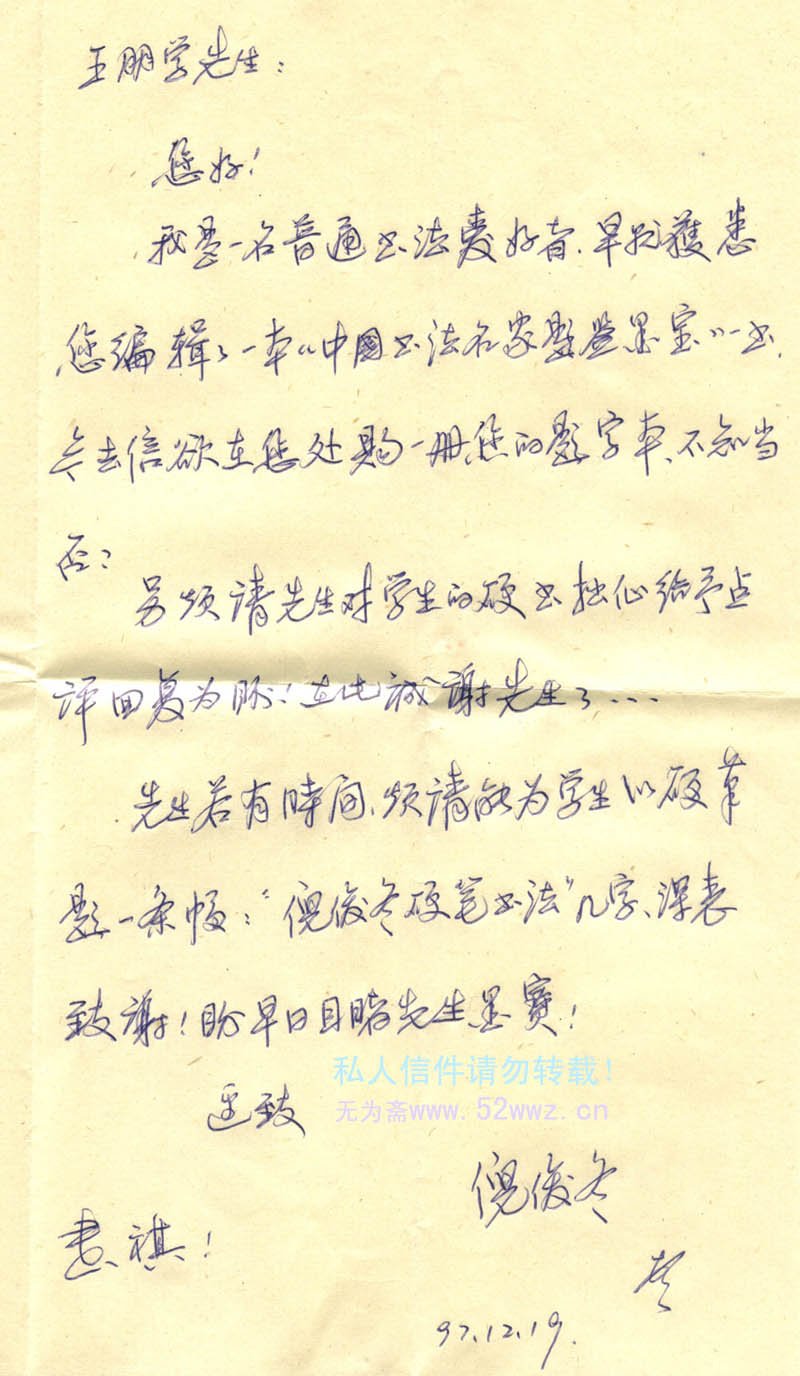 王朋学先生：
您好！
我是一名普通书法爱好者.早就獲悉
您编辑了一本《中國书法名家题签墨宝》一书,
今去信欲在您处购一册您的题字本、不知当
否？
另烦请先生对学生的硬书拙作给予点
评回复为盼！在此诚谢先生了...
先生若有時间、烦请能为学生以硬筆
题一条幅：“倪俊冬硬笔书法”几字、深表
致谢！盼早日目睹先生墨寶！
私人信件请勿转载！
无为斋www.52wwz.cn
此致
倪俊冬
書祺！
97.12.19.